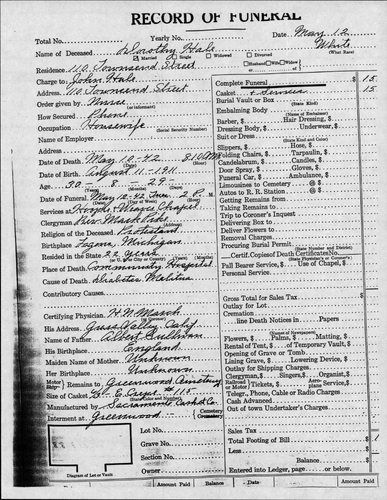 RECORD OF FUNERAL
Total No. Yearly No. Date May 12
Name of Deceased Dorothy Hale White
Married Single Widowed Divorced (What Race)
Residence 110 Townsend Street Husband Wife Widow
Charge to John Hale
Address 110 Townsend Street
Order given by Nurse
(or Informant)
How Secured Phone
Occupation Housewife
(Social Security Number)
Name of Employer
Address
Date of Death May 10-42 8 10
Date of Birth August 11-1911
Age 30 - 8 - 29
Date of Funeral May 12-42 Tue. 2 P.M.
Services at Hooper & Weaver Chapel
Clergyman Rev.
Religion of the Deceased Protestant
Birthplace Michigan
Resided in the State 22 years
Place of Death Community Hospital
Cause of Death Diabetes
Contributory Causes
Certifying Physician H. N. Marsh
His Address Grass Valley, Calif.
Name of Father Albert Sullivan
His Birthplace England
Maiden Name of Mother Unknown
Her Birthplace Unknown
Remains to Greenwood Cemetery
Size of Casket
Manufactured by Sacramento Casket Co.
Interment at Greenwood Cemetery Crematory
Lot No.
Grave No.
Section No.
Owner
Diagram of Lot or Vault
Complete Funeral $ 15
Casket + Service 15
Burial Vault or Box
(State Kind)
Embalming Body
(Name of Embalmer)
Barber, $ Hair Dressing, $
Dressing Body, $ Underwear, $
Suit or Dress
(State Kind and Color)
Slippers, $ Hose, $
Folding Chairs, $ Tarpaulin, $
Candelabrum, $ Candles, $
Door Spray, $ Gloves, $
Funeral Car, $ Ambulance, $
Limousines to Cemetery @ $
Autos to R. R. Station @ $
Getting Remains from
Taking Remains to
Trip to Coroner's Inquest
Delivering Box to
Deliver Flowers to
Removal Charges
Procuring Burial Permit
(State Number and District)
Certif. Copies of Death Certificate No.
(State Physician's or Coroner's)
Pall Bearer Service, $ Use of Chapel, $
Personal Service
Gross Total for Sales Tax
Outlay for Lot
Cremation
line Death Notices in Papers
(Names of Newspapers)
Flowers, $ Palms, $ Matting, $
Rental of Tent, $ of Temporary Vault, $
Opening of Grave or Tomb
Lining Grave, $ Lowering Device, $
Outlay for Shipping Charges
Clergyman, $ Singers, $ Organist, $
Railroad or Motor Tickets, $ Aeroplane Service, $
Telegr., Phone, Cable or Radio Charges
Cash Advanced
Out of town Undertaker's Charges
Sales Tax
Total Footing of Bill $
Less
Balance
Entered into Ledger, page or below.
Amount Paid Balance Date Amount Paid